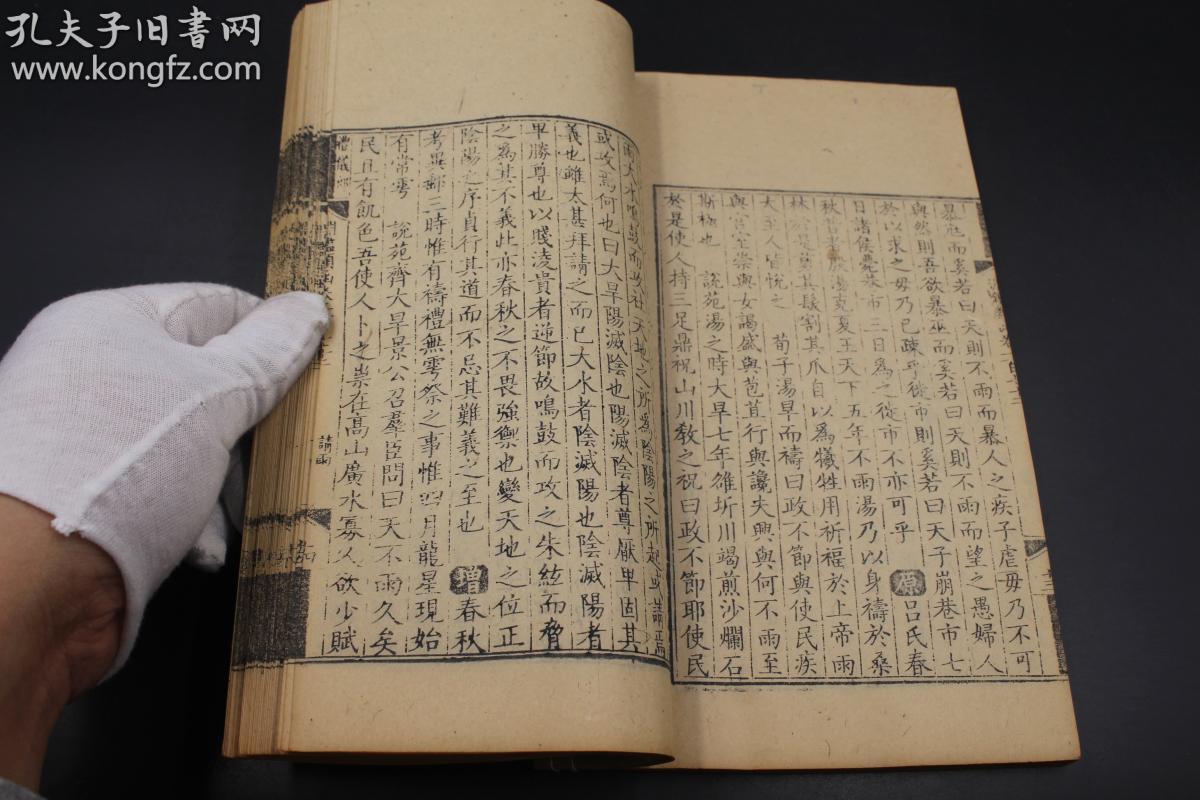 孔夫子旧书网
www.kongfz.com
暴尫而奚若曰天則不雨而暴人之疾子虐毋乃不可
與然則吾欲暴巫而奚若曰天則不雨而望之愚婦人
於以求之毋乃已疎乎徙市則奚若曰天子崩巷市七
日諸侯薨巷市三日爲之徙市不亦可乎 原 呂氏春
秋昔者殷湯克夏王天下五年不雨湯乃以身禱於桑
林於是剪其髮割其爪自以爲犧牲用祈福於上帝雨
大至人皆悅之 荀子湯旱而禱曰政不節與使民疾
與宮室崇與女謁盛與苞苴行與讒夫興與何不雨至
斯極也 說苑湯之時大旱七年雒圻川竭煎沙爛石
於是使人持三足鼎祝山川敎之祝曰政不節耶使民
雨大水鳴鼓而攻社天地之所爲陰陽之所起或請焉
或攻焉何也曰大旱陽滅陰也陽滅陰者尊厭卑固其
義也雖太甚拜請之而已大水者陰滅陽也陰滅陽者
卑勝尊也以賤淩貴者逆節故鳴鼓而攻之朱絃而脅
之爲其不義此亦春秋之不畏強禦也變天地之位正
陰陽之序貞行其道而不忌其難義之至也 增 春秋
考異郵三時惟有禱禮無雩祭之事惟四月龍星現始
有常雩 說苑齊大旱景公召羣臣問曰天不雨久矣
民且有飢色吾使人卜之祟在高山廣水寡人欲少賦
請雨